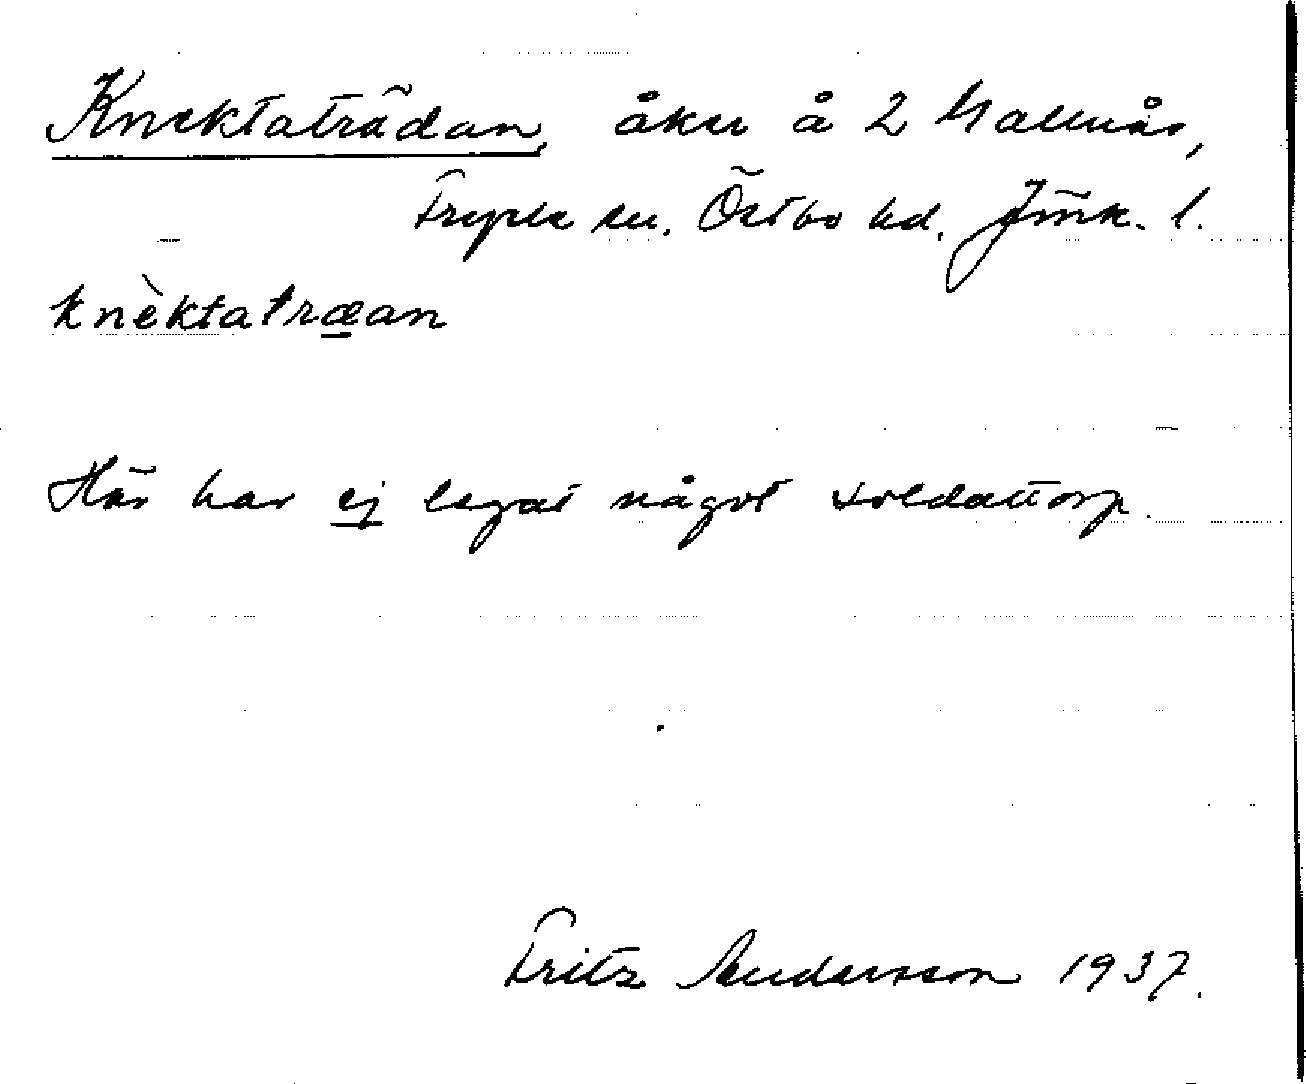 Knektaträdan, åker å 2 Hallnås,
Fryele sn. Östbo hd. Jönk. l.
knèktatræan
Här har ej legat något soldattorp.
Fritz Andersson 1937.